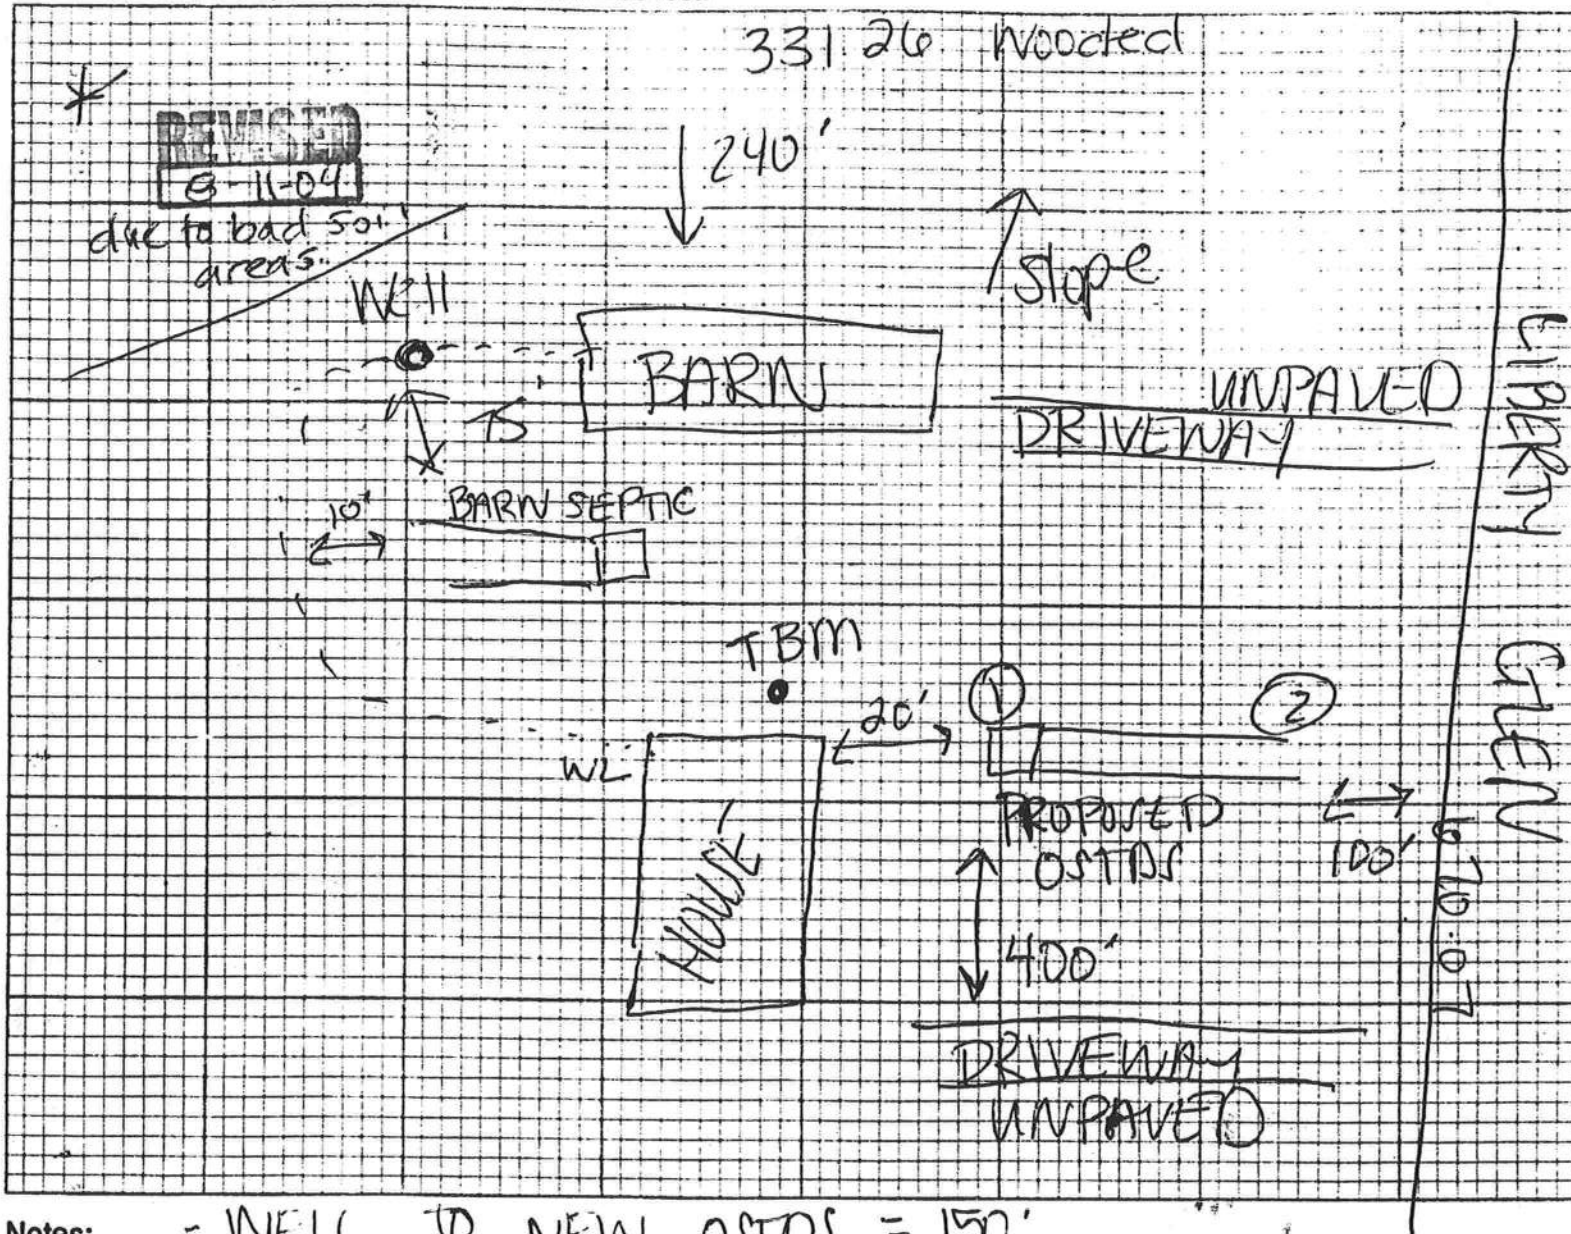 331 26 Wooded
REVISED
8-11-04
due to bad soil
areas.
240'
slope
Well
BARN
75
UNPAVED
DRIVEWAY
LIBERTY GLEN
10'
BARN SEPTIC
TBM
20'
1
2
WL
HOUSE
PROPOSED
OSTDS
100'
670.07
400'
DRIVEWAY
UNPAVED
Notes: - WELL TO NEW OSTDS = 150'